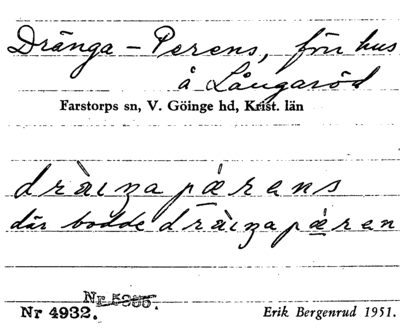 Dränga-Perens, förr hus
å Långaröd
Farstorps sn, V. Göinge hd, Krist. län
dràiŋa pǽrens
där bodde dràiŋa pǽren
Nr 5005.
Nr 4932.
Erik Bergenrud 1951.